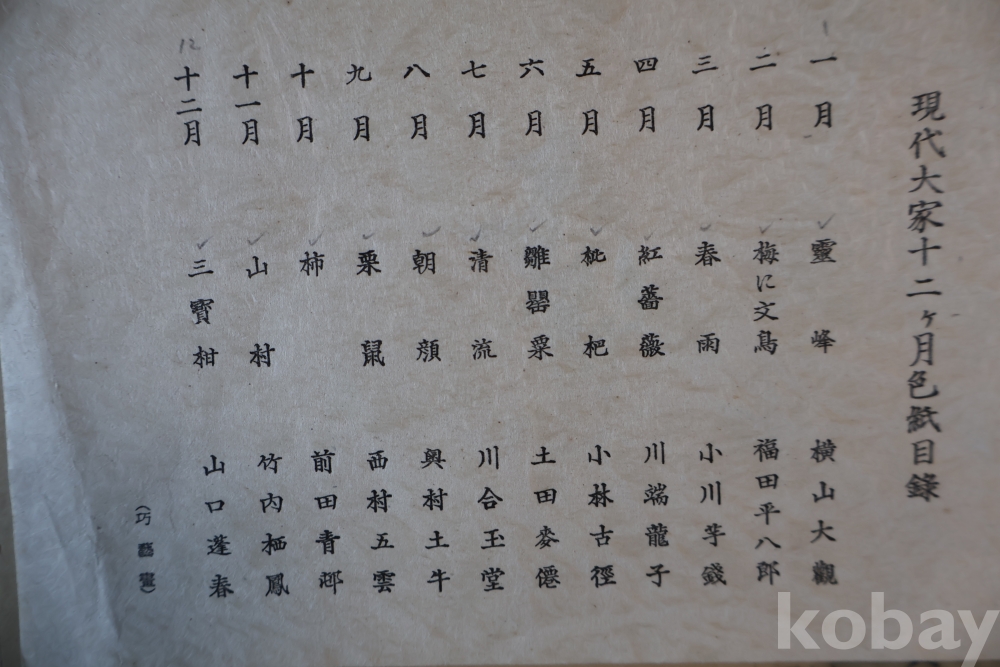 現代大家十二ヶ月色紙目錄
一月 靈峰 横山大觀
二月 梅に文鳥 福田平八郎
三月 春雨 小川芋錢
四月 紅薔薇 川端龍子
五月 枇杷 小林古徑
六月 雛罌粟 土田麥僊
七月 清流 川合玉堂
八月 朝顔 奥村土牛
九月 栗鼠 西村五雲
十月 柿 前田青邨
十一月 山村 竹内栖鳳
12
十二月 三寶柑 山口蓬春
（巧藝社）
kobay